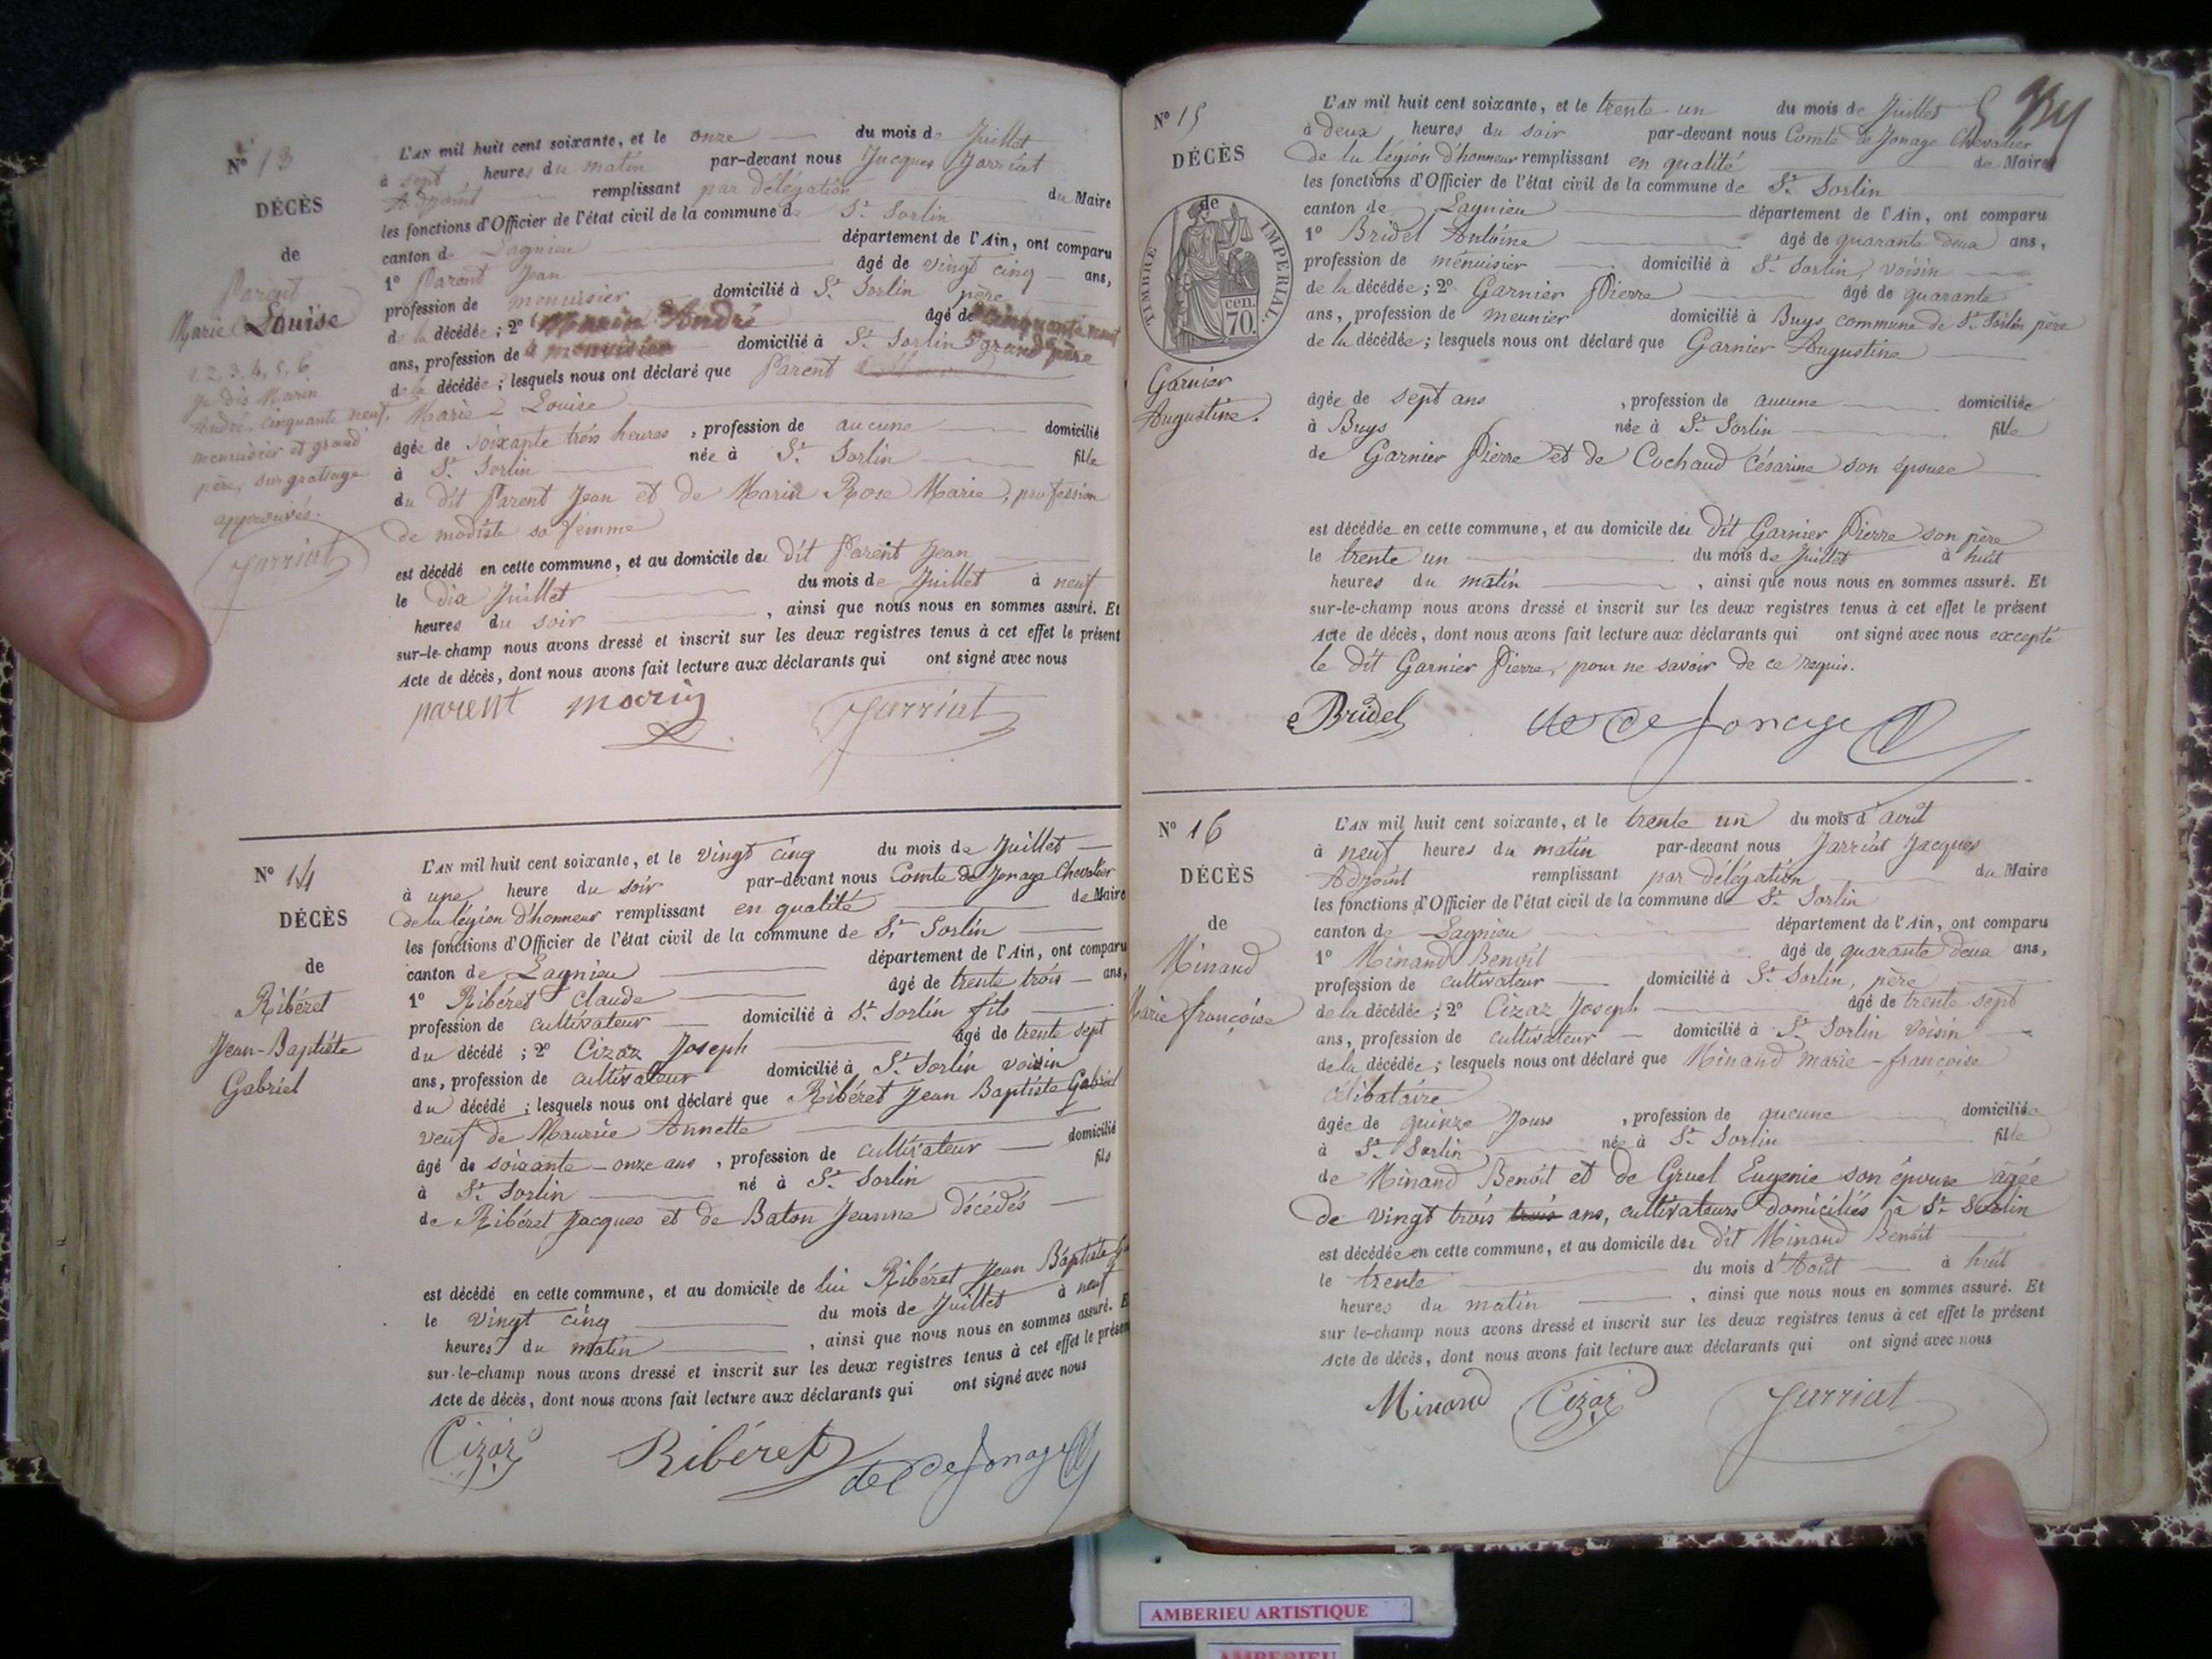 N° 13
DÉCÈS
de
Parent
Marie Louise
1. 2. 3. 4. 5. 6.
je dis Marin
André, cinquante neuf,
menuisier et grand
père, sur grattage
approuvés.
Jarriat
L'AN mil huit cent soixante, et le onze du mois de Juillet
à sept heures du matin par-devant nous Jacques Jarriat
Adjoint remplissant par délégation du Maire
les fonctions d'Officier de l'état civil de la commune de St Sorlin
canton de Lagnieu département de l'Ain, ont comparu
1° Parent Jean âgé de vingt cinq ans,
profession de menuisier domicilié à St Sorlin père
de la décédée ; 2° Marin André âgé de cinquante neuf
ans, profession de menuisier domicilié à St Sorlin grand père
de la décédée ; lesquels nous ont déclaré que Parent
Marie Louise
âgée de soixante trois heures, profession de aucune domicilié
à St Sorlin née à St Sorlin fille
du dit Parent Jean et de Marin Rose Marie, profession
de modiste sa femme
est décédé en cette commune, et au domicile du dit Parent Jean
le dix Juillet du mois de Juillet à neuf
heures du soir, ainsi que nous nous en sommes assuré. Et
sur-le-champ nous avons dressé et inscrit sur les deux registres tenus à cet effet le présent
Acte de décès, dont nous avons fait lecture aux déclarants qui ont signé avec nous
parent marin Jarriat
N° 14
DÉCÈS
de
Ribéret
Jean-Baptiste
Gabriel
L'AN mil huit cent soixante, et le vingt cinq du mois de Juillet
à une heure du soir par-devant nous Comte de Jonage Chevalier
de la légion d'honneur remplissant en qualité de Maire
les fonctions d'Officier de l'état civil de la commune de St Sorlin
canton de Lagnieu département de l'Ain, ont comparu
1° Ribéret Claude âgé de trente trois ans,
profession de cultivateur domicilié à St Sorlin fils
du décédé ; 2° Cizoz Joseph âgé de trente sept
ans, profession de cultivateur domicilié à St Sorlin voisin
du décédé ; lesquels nous ont déclaré que Ribéret Jean Baptiste Gabriel
veuf de Annette
âgé de soixante-onze ans, profession de cultivateur domicilié
à St Sorlin né à St Sorlin fils
de Ribéret Jacques et de Baton Jeanne décédés
est décédé en cette commune, et au domicile de lui Ribéret Jean Baptiste
le vingt cinq du mois de Juillet à neuf
heures du matin, ainsi que nous nous en sommes assuré. E
sur-le-champ nous avons dressé et inscrit sur les deux registres tenus à cet effet le présen
Acte de décès, dont nous avons fait lecture aux déclarants qui ont signé avec nous
Cizoz Ribéret de Jonage
N° 15
DÉCÈS
de
TIMBRE IMPERIAL.
70 cen.
Garnier
Augustine.
L'AN mil huit cent soixante, et le trente un du mois de Juillet
à deux heures du soir par-devant nous Comte de Jonage Chevalier
de la légion d'honneur remplissant en qualité de Maire
les fonctions d'Officier de l'état civil de la commune de St Sorlin
canton de Lagnieu département de l'Ain, ont comparu
1° Bridel Antoine âgé de quarante deux ans,
profession de menuisier domicilié à St Sorlin, voisin
de la décédée ; 2° Garnier Pierre âgé de quarante
ans, profession de meunier domicilié à Buys commune de St Sorlin père
de la décédée ; lesquels nous ont déclaré que Garnier Augustine
âgée de sept ans, profession de aucune domiciliée
à Buys née à St Sorlin fille
de Garnier Pierre et de Cochaud Césarine son épouse
est décédée en cette commune, et au domicile du dit Garnier Pierre son père
le trente un du mois de Juillet à huit
heures du matin, ainsi que nous nous en sommes assuré. Et
sur-le-champ nous avons dressé et inscrit sur les deux registres tenus à cet effet le présent
Acte de décès, dont nous avons fait lecture aux déclarants qui ont signé avec nous excepté
le dit Garnier Pierre, pour ne savoir de ce requis.
Bridel de Jonage
N° 16
DÉCÈS
de
Minand
Marie françoise
L'AN mil huit cent soixante, et le trente un du mois d'août
à neuf heures du matin par-devant nous Jarriat Jacques
Adjoint remplissant par délégation du Maire
les fonctions d'Officier de l'état civil de la commune de St Sorlin
canton de Lagnieu département de l'Ain, ont comparu
1° Minand Benoit âgé de quarante deux ans,
profession de cultivateur domicilié à St Sorlin, père
de la décédée ; 2° Cizoz Joseph âgé de trente sept
ans, profession de cultivateur domicilié à St Sorlin voisin
de la décédée ; lesquels nous ont déclaré que Minand marie-françoise
célibataire
âgée de quinze Jours, profession de aucune domiciliée
à St Sorlin née à St Sorlin fille
de Minand Benoit et de Gruel Eugenie son épouse âgée
de vingt trois trois ans, cultivateurs domiciliés à St Sorlin
est décédée en cette commune, et au domicile du dit Minand Benoit
le trente du mois d'Août à huit
heures du matin, ainsi que nous nous en sommes assuré. Et
sur le-champ nous avons dressé et inscrit sur les deux registres tenus à cet effet le présent
Acte de décès, dont nous avons fait lecture aux déclarants qui ont signé avec nous
Minand Cizoz Jarriat
AMBERIEU ARTISTIQUE
AMBERIEU